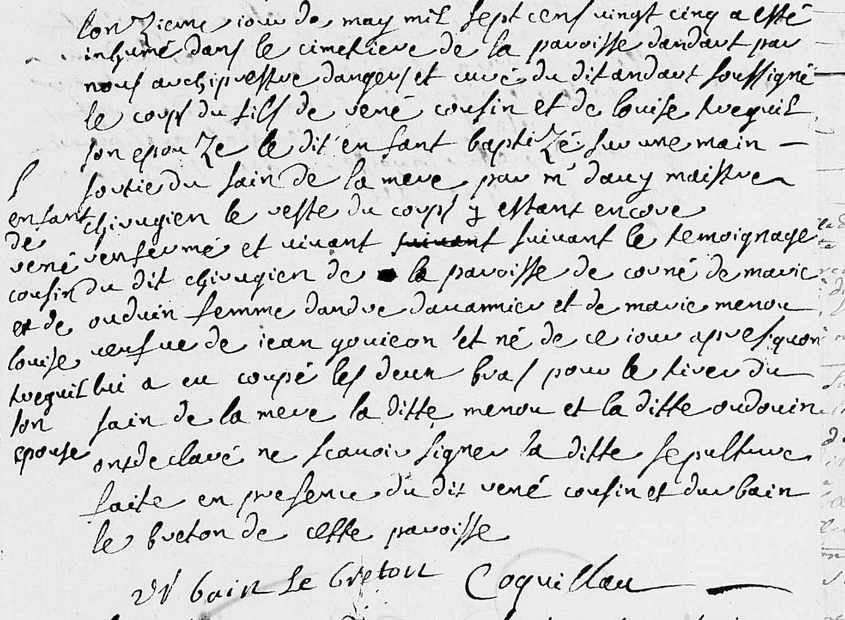 lonzieme iour de may mil sept cens vingt cinq a esté
inhumé dans le cimetiere de la paroisse dandart par
nous archiprestre dangers et curé du dit andart soussigné
le corps du fils de rené cousin et de louise treguil
son epouze le dit enfant baptizé sur une main
sortie du sain de la mere par mr davy maistre
chirugien le reste du corps y estant encore
renfermé et vivant suivant suivant le temoignage
du dit chirugien de la paroisse de corné de marie
ouduin femme dandre davannier et de marie menou
veufue de iean gouieon et né de ce iour apres quon
lui a eu coupé les deux bras pour le tirer du
sain de la mere la ditte menou et la ditte oudouin
ont declaré ne scavoir signer la ditte sepulture
faite en presence du dit rené cousin et durbain
le breton de cette paroisse
l
enfant
de
rené
cousin
et de
louise
treguil
son
epouse
Vr bain Le breton Coquillau